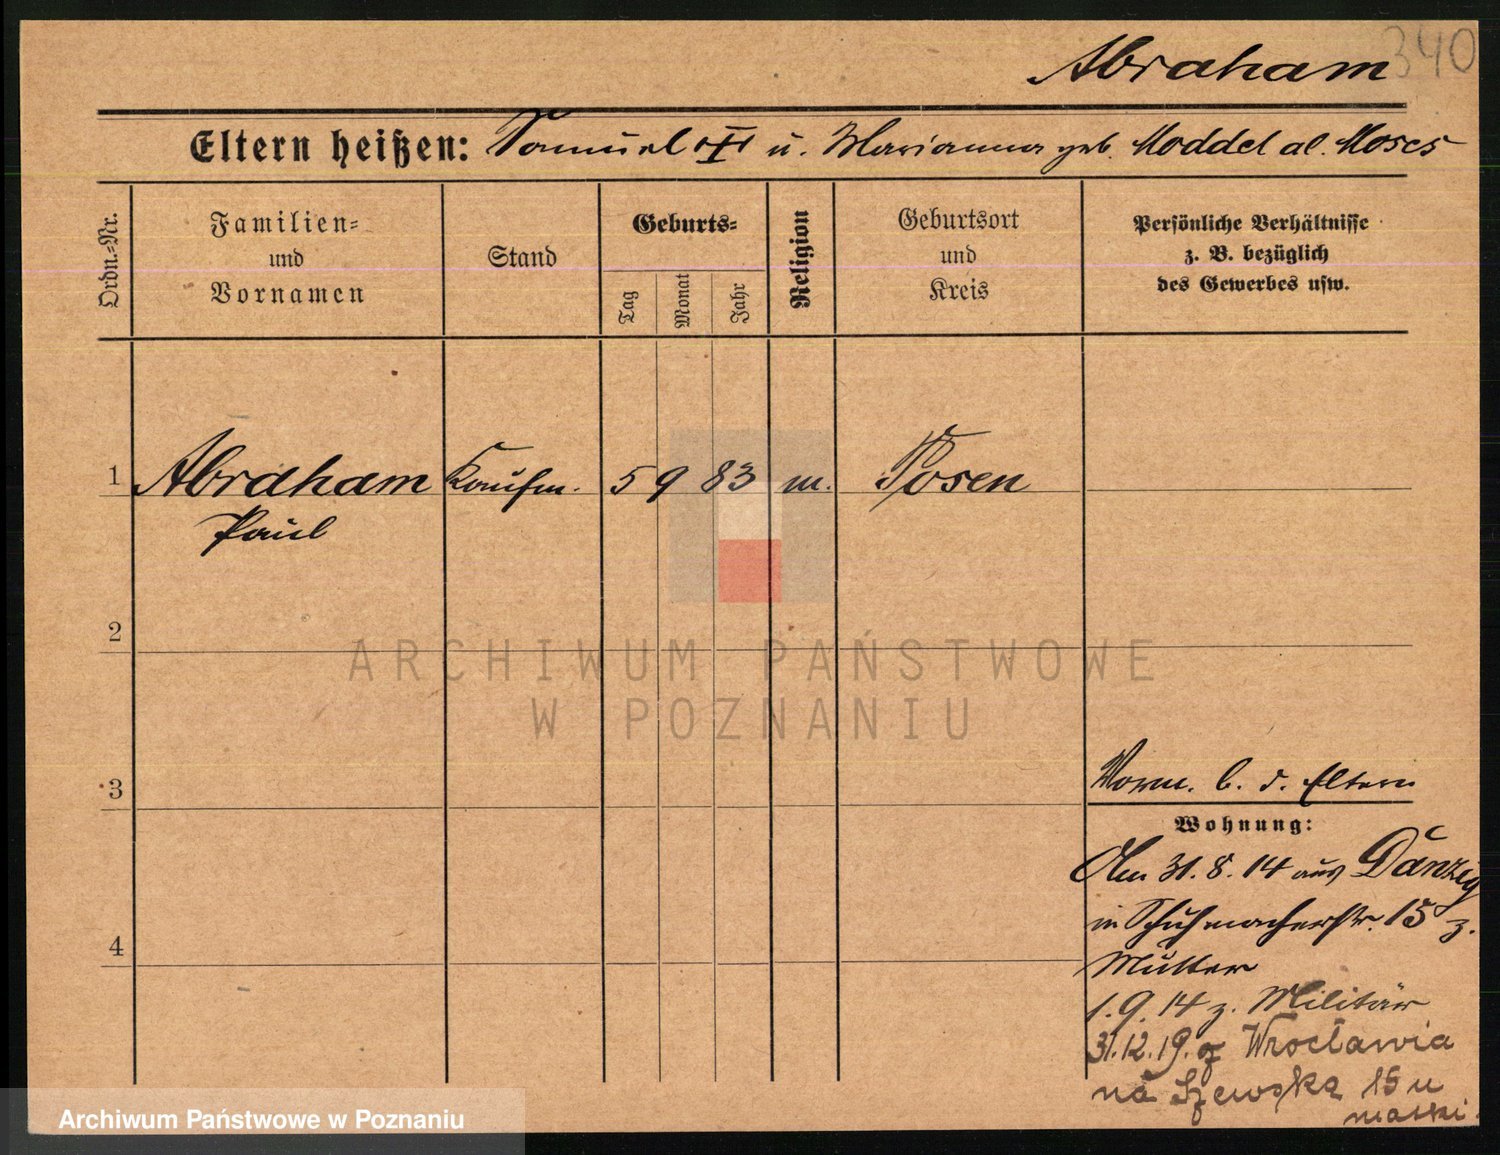 340
Abraham
Eltern heißen: Samuel † u. Marianna geb. Moddel al. Moses
Ordn.-Nr.
Familien-
und
Vornamen
Stand
Geburts-
Tag
Monat
Jahr
Religion
Geburtsort
und
Kreis
Persönliche Verhältnisse
z. B. bezüglich
des Gewerbes usw.
1 Abraham Kaufm. 5 9 83 m. Posen
Paul
2
ARCHIWUM PAŃSTWOWE
W POZNANIU
3
Vorm. b. d. Eltern
Wohnung:
Am 31.8.14 aus Danzig
in Schuhmacherstr. 15 z.
Mutter
4
1.9.14 z. Militär
31.12.19. z Wrocławia
na Szewską 15 u
matki.
Archiwum Państwowe w Poznaniu